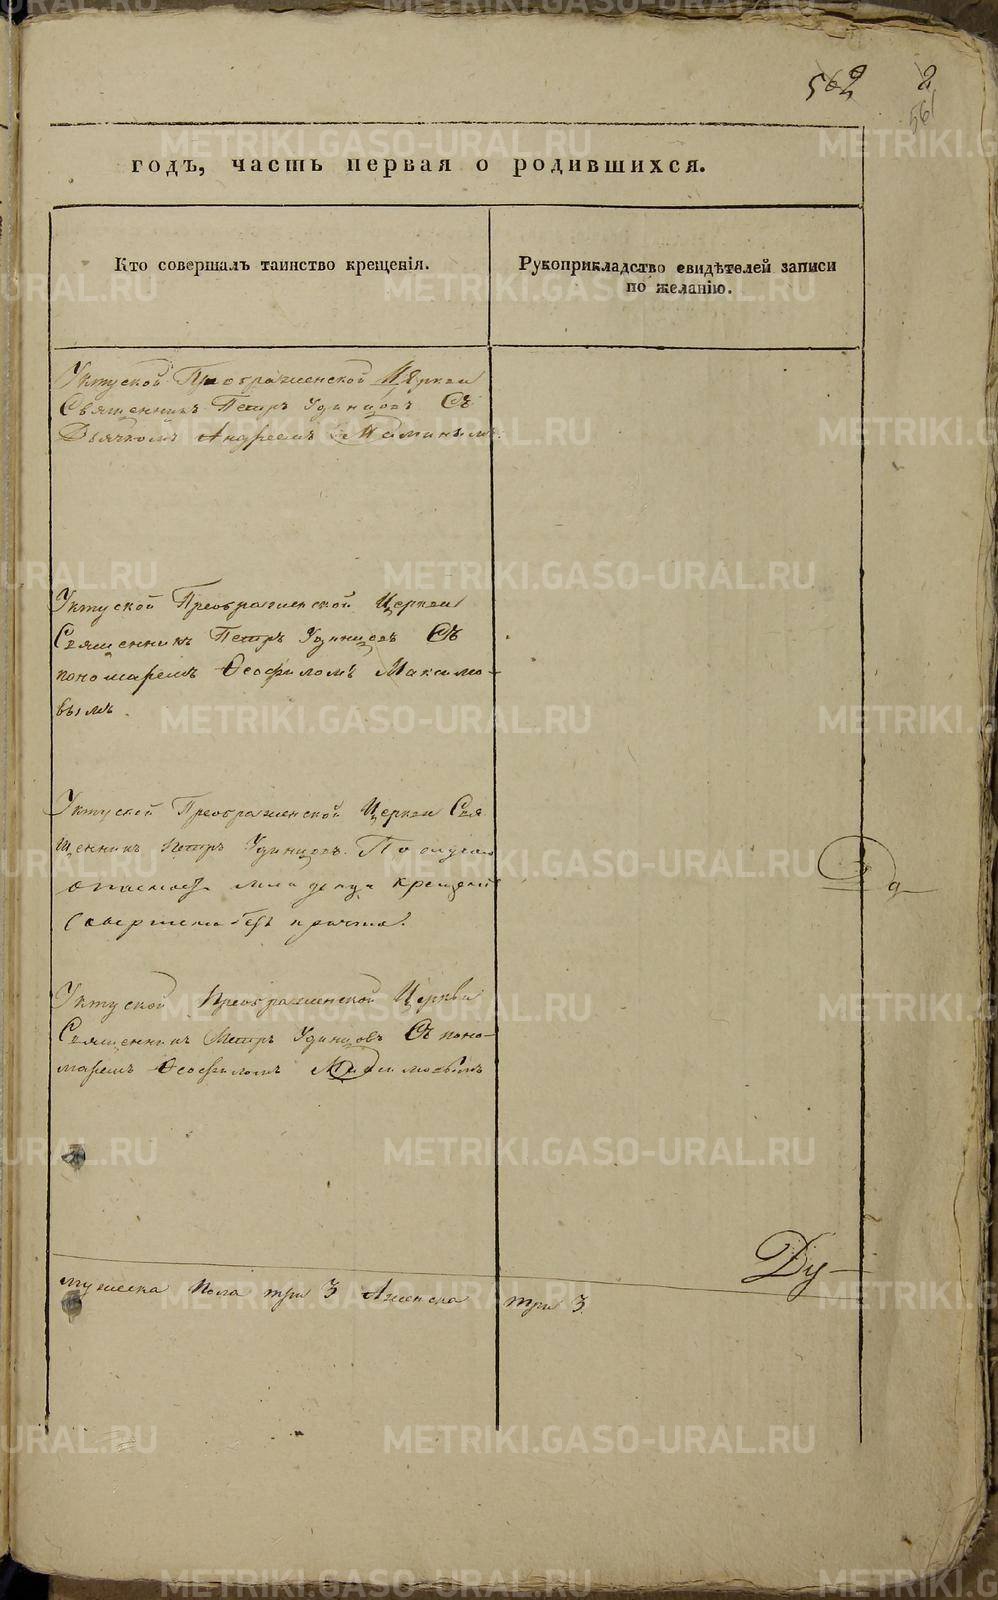 562 2
561
годъ, часть первая о родившихся.
Кто совершалъ таинство крещенія.
Рукоприкладство свидѣтелей записи
по желанію.
Уктуской Преображенской Церкви
Священникъ Петръ Удинцовъ Съ
Дьячкомъ Андреемъ Маминымъ
Уктуской Преображенской Церкви
Священникъ Петръ Удинцовъ Съ
пономаремъ Ѳеофиломъ Максимо-
вымъ.
Уктуской Преображенской Церкви Свя
щенникъ Петръ Удинцовъ. По случаю
опасности младенца крещеніе
Совершено безъ причта.
Уктуской Преображенской Церкви
Священникъ Петръ Удинцовъ Съ поно-
маремъ Ѳеофиломъ Максимовымъ
Ду-
мужеска пола три 3 Аженска три 3.
METRIKI.GASO-URAL.RU